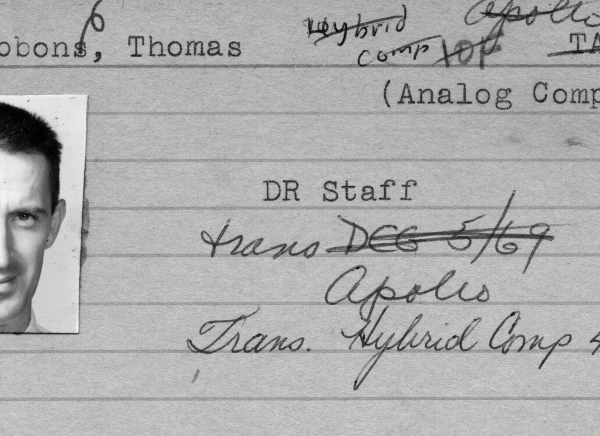 Hybrid Apollo
obons, Thomas Comp TA
(Analog Comp
DR Staff
trans DEC 5/69
Apollo
Trans. Hybrid Comp 4